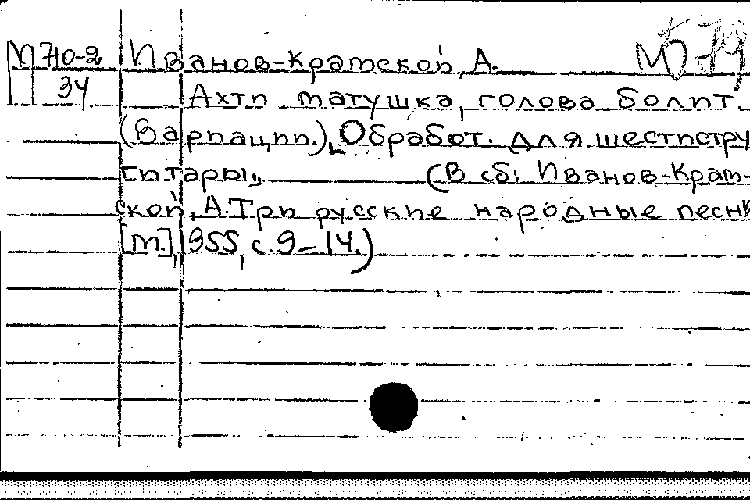 М 710-2 Иванов-Крамской, А.
34 Ахти матушка, голова болит.
(Вариации.) Обработ. для шестистру
гитары. (В сб: Иванов-Крам-
ской, А. Три русские народные песни
[М.], 1955, с. 9-14.)